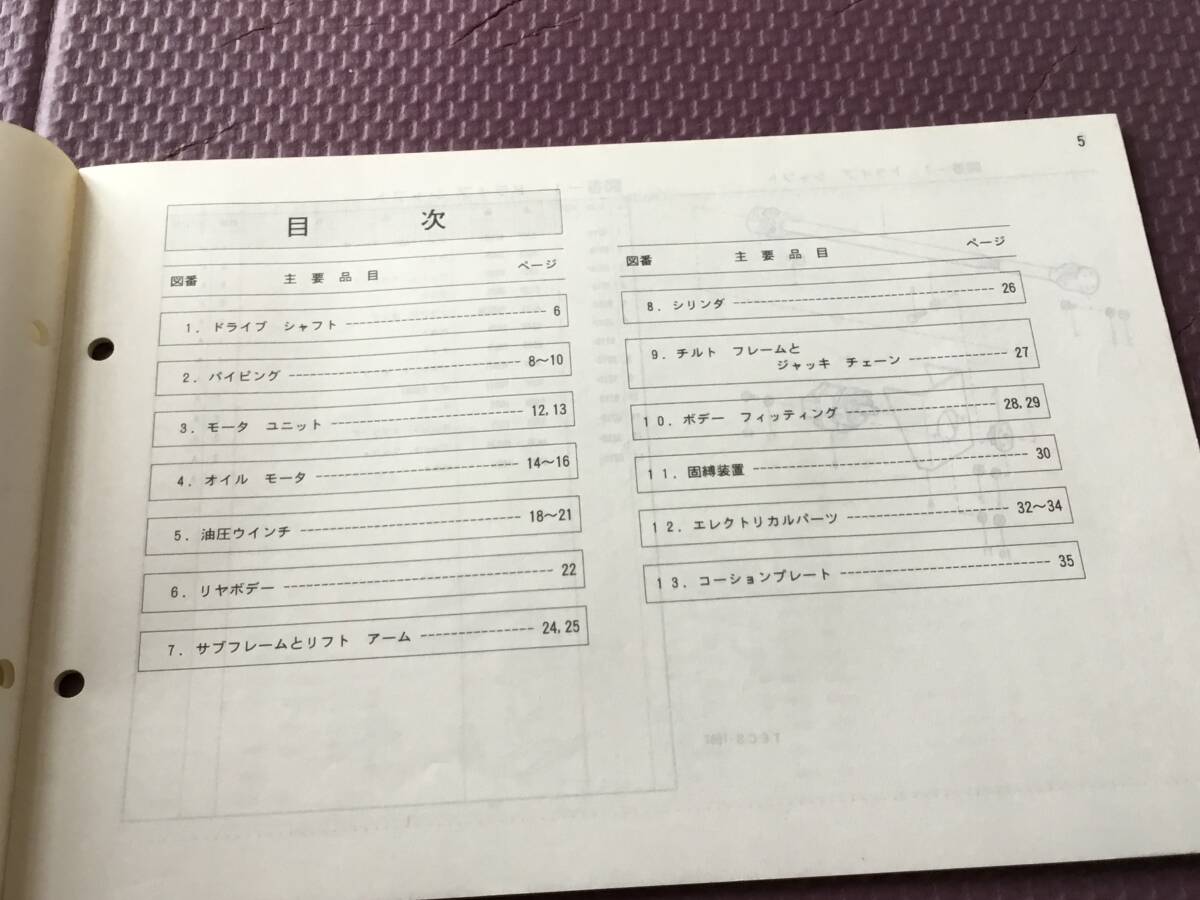 5
目 次
図番 主要品目 ページ
1. ドライブ シャフト 6
2. パイピング 8〜10
3. モータ ユニット 12,13
4. オイル モータ 14〜16
5. 油圧ウインチ 18〜21
6. リヤボデー 22
7. サブフレームとリフト アーム 24,25
図番 主要品目 ページ
8. シリンダ 26
9. チルト フレームと
ジャッキ チェーン 27
10. ボデー フィッティング 28,29
11. 固縛装置 30
12. エレクトリカルパーツ 32〜34
13. コーションプレート 35